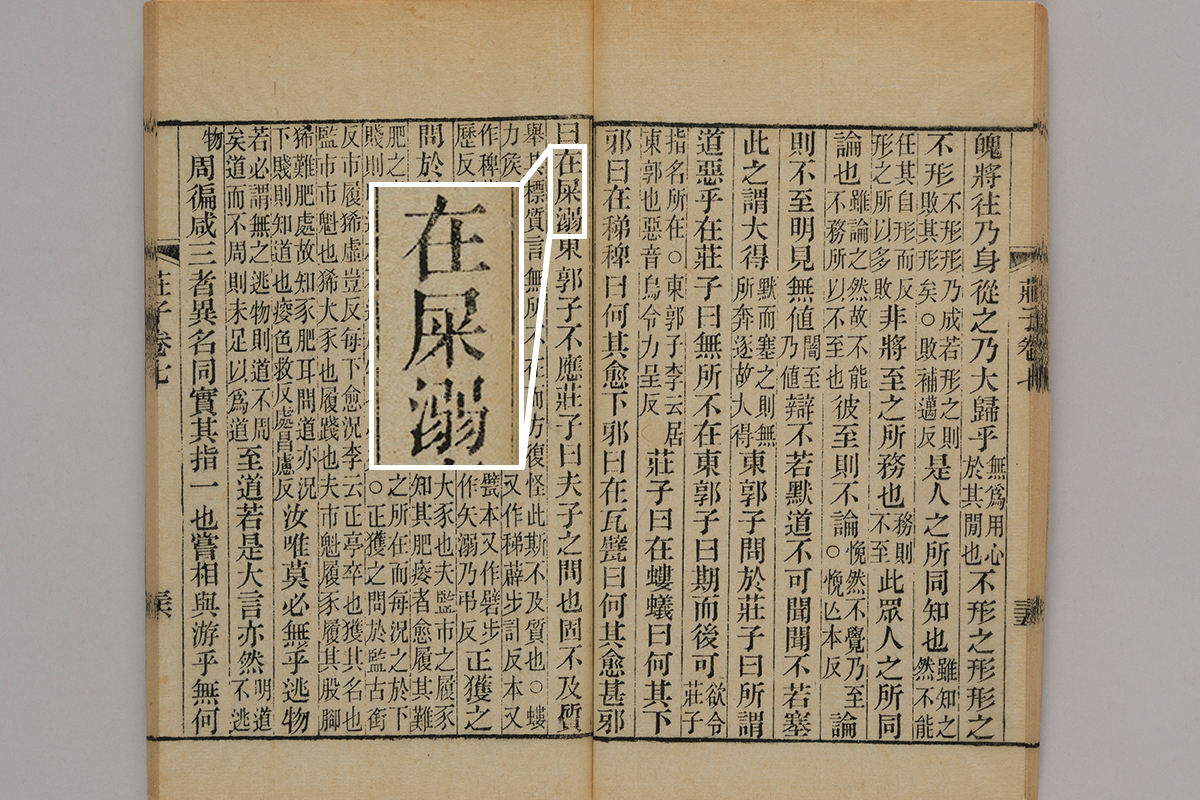 魄將往乃身從之乃大歸乎無爲用心於其閒也不形之形形之
不形不形形乃成若形之則敗其形矣○敗補邁反是人之所同知也雖知之然不能
任其自形而反形之所以多敗非將至之所務也務則不至此眾人之所同
論也雖論之然故不能不務所以不至也彼至則不論悗然不覺乃至○悗亡本反論
則不至明見無值闇至乃值辯不若默道不可聞聞不若塞
此之謂大得默而塞之則無所奔逐故大得東郭子問於莊子曰所謂
道惡乎在莊子曰無所不在東郭子曰期而後可欲令莊子
指名所在○東郭子李云居東郭也惡音烏令力呈反莊子曰在螻蟻曰何其下
邪曰在稊稗曰何其愈下邪曰在瓦甓曰何其愈甚邪
曰在屎溺東郭子不應莊子曰夫子之問也固不及質
舉其標質言無所不在而方復怪此斯不及質也○螻
力侯又作稊薜步計反本又
作稗甓本又作礕步
歷反作矢溺乃弔反正獲之
問於大豕也夫監市之履豕知其肥瘦者愈履其難
肥之之所在而每況之於下
賤則○正獲之問於監古銜
反市履豨虛豈反每下愈況李云正亭卒也獲其名也
監市市魁也豨大豕也履踐也夫市魁履豕履其股腳
豨難肥處故知豕肥耳問道亦況下賤則知道也瘦色救反處昌慮反汝唯莫必無乎逃物
若必謂無之逃物則道不周矣道而不周則未足以爲道至道若是大言亦然明道不逃
物周徧咸三者異名同實其指一也嘗相與游乎無何
莊子卷七
在屎溺